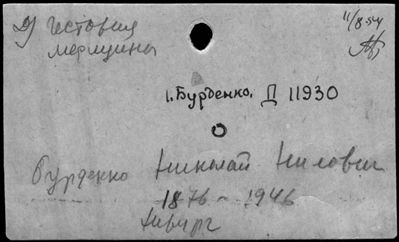 История
медицины
11/8-54
1. Бурденко. Д 11930
Бурденко Николай Нилович
1876 - 1946
Хирург